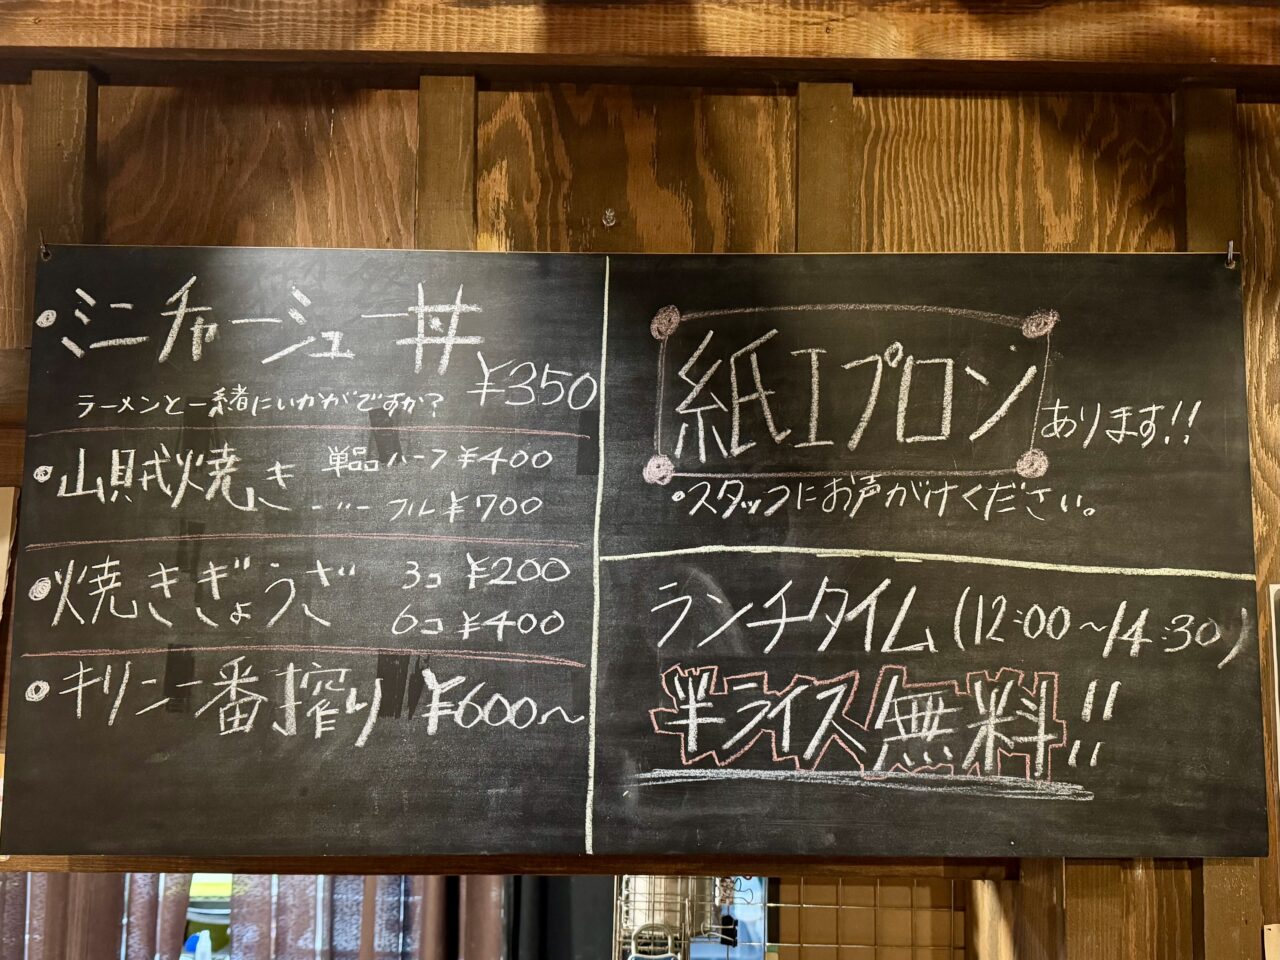 ・ミニチャーシュー丼
ラーメンと一緒にいかがですか? ¥350
・山賊焼き 単品ハーフ ¥400
〃 フル ¥700
・焼きぎょうざ 3コ ¥200
6コ ¥400
・キリン一番搾り ¥600～
紙エプロン あります!!
・スタッフにお声がけください。
ランチタイム (12:00～14:30)
半ライス無料!!